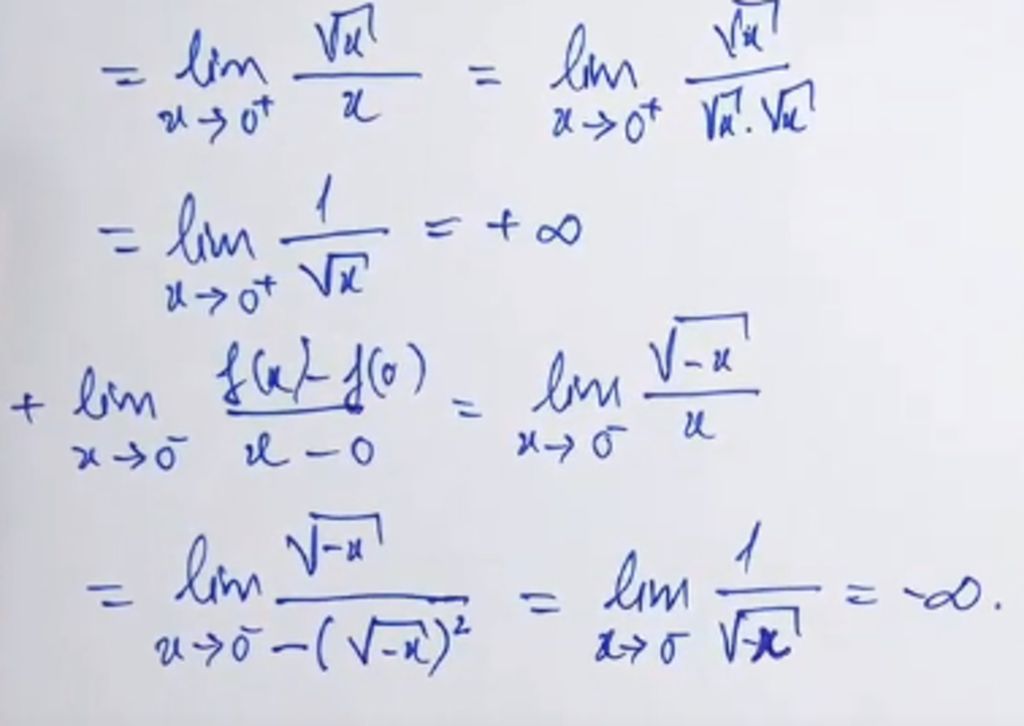 = lim x→0⁺ √x / x = lim x→0⁺ √x / (√x . √x)
= lim x→0⁺ 1 / √x = + ∞
+ lim x→0⁻ (f(x) - f(0)) / (x - 0) = lim x→0⁻ √(-x) / x
= lim x→0⁻ √(-x) / (-(√(-x))²) = lim x→0⁻ 1 / √(-x) = -∞.